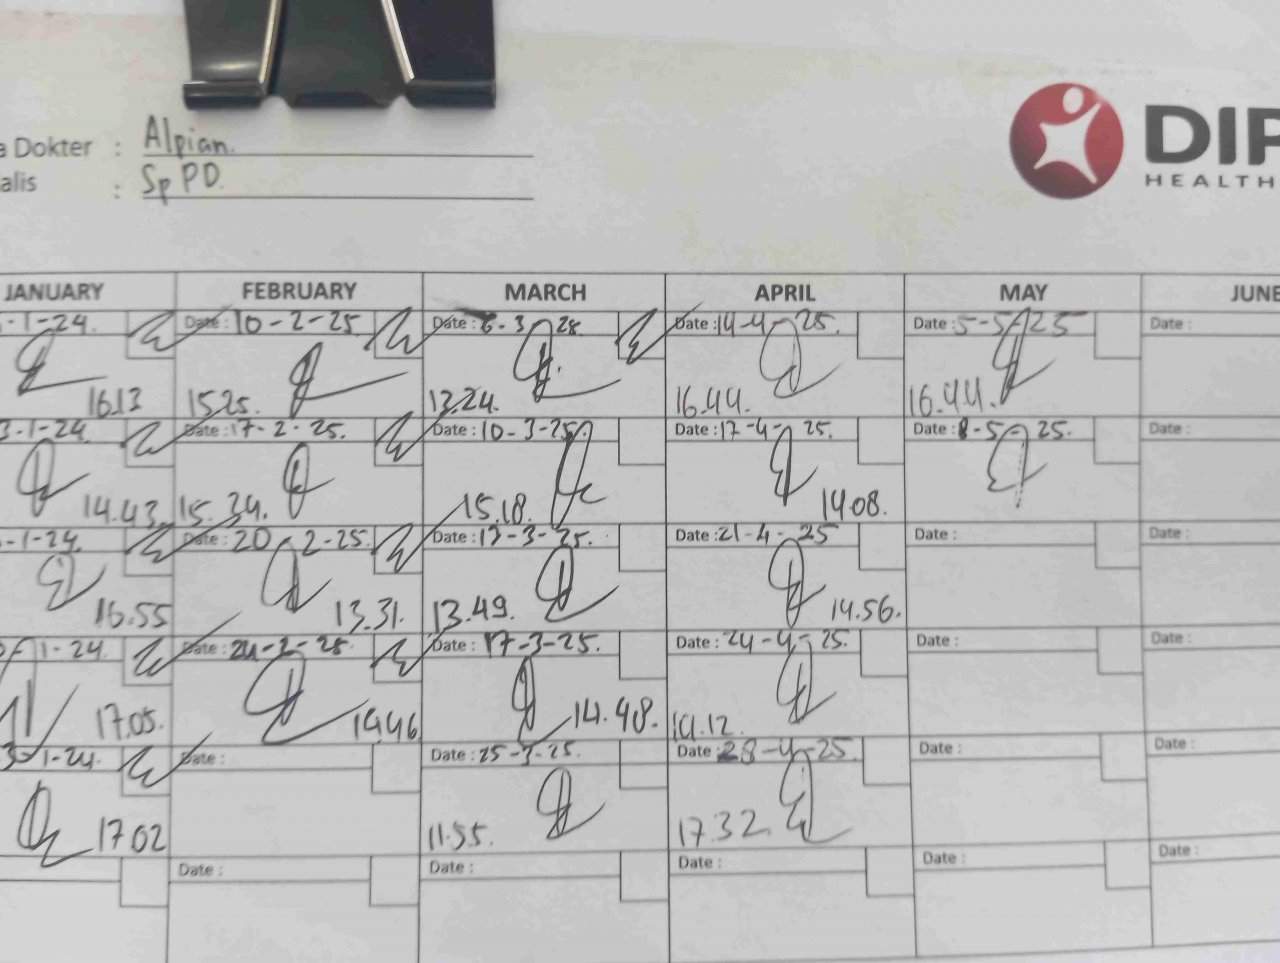 a Dokter : Alpian.
alis : Sp PD.
DIP
HEALTH
JANUARY FEBRUARY MARCH APRIL MAY JUNE
-1-24. Date : 10-2-25 Date : 6-3 28 Date : 14-4-25. Date : 5-5-25 Date :
16.13 15.25. 13.24. 16.44. 16.44.
3-1-24. Date : 17-2-25. Date : 10-3-25. Date : 17-4-25. Date : 8-5-25. Date :
14.43. 15.34. 15.18. 14.08.
-1-24. Date : 20-2-25. Date : 13-3-25. Date : 21-4-25 Date : Date :
16.55 13.31. 13.49. 14.56.
1-24. Date : 24-2-25. Date : 17-3-25. Date : 24-4-25. Date : Date :
17.05. 14.46 14.48. 14.12.
1-24. Date : Date : 25-3-25. Date : 28-4-25. Date : Date :
17 02 11.55. 17.32.
Date : Date : Date : Date : Date :